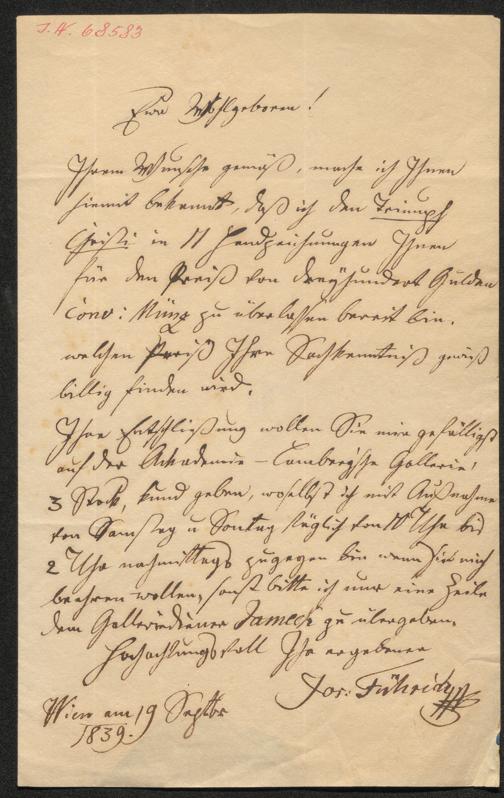 J.N. 68583
Euer Wohlgeboren!
Ihrem Wunsche gemäß, mache ich Ihnen
hiemit bekannt, daß ich den Triumph
Christi in 11 Handzeichnungen Ihnen
für den Preiß von dreyhundert Gulden
Conv: Münz zu überlassen bereit bin.
welchen Preiß Ihre Sachkenntniß gewiß
billig finden wird.
Ihre Entschließung wollen Sie mir gefälligst
auf der Akademie – Lambergsche Gallerie,
3 Stock, kund geben, woselbst ich mit Außnahme
von Samstag u Sontag täglich von 10 Uhr bis
2 Uhr nachmittags zugegen bin wenn Sie mich
beehren wollen, sonst bitte ich nur eine Zeile
dem Galleriediener zu übergeben.
Hochachtungsvoll Ihr ergebener
Jos: Führich
Wien am 19 Septbr
1839.